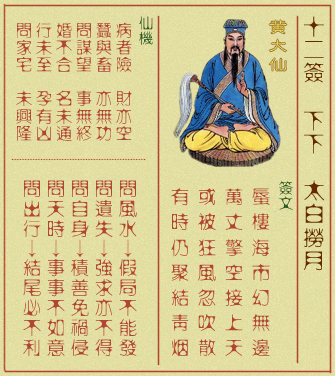 十二簽 下下 太白撈月
黃大仙
簽文
蜃樓海市幻無邊
萬丈擎空接上天
或被狂風忽吹散
有時仍聚結靑烟
仙機
病者險 財亦空
蠶與畜 亦無功
問謀望 事無終
婚不合 名未通
行未至 孕有凶
問家宅 未興隆
問風水→假局不能發
問遺失→強求亦不得
問自身→積善免禍侵
問天時→事事不如意
問出行→結尾必不利